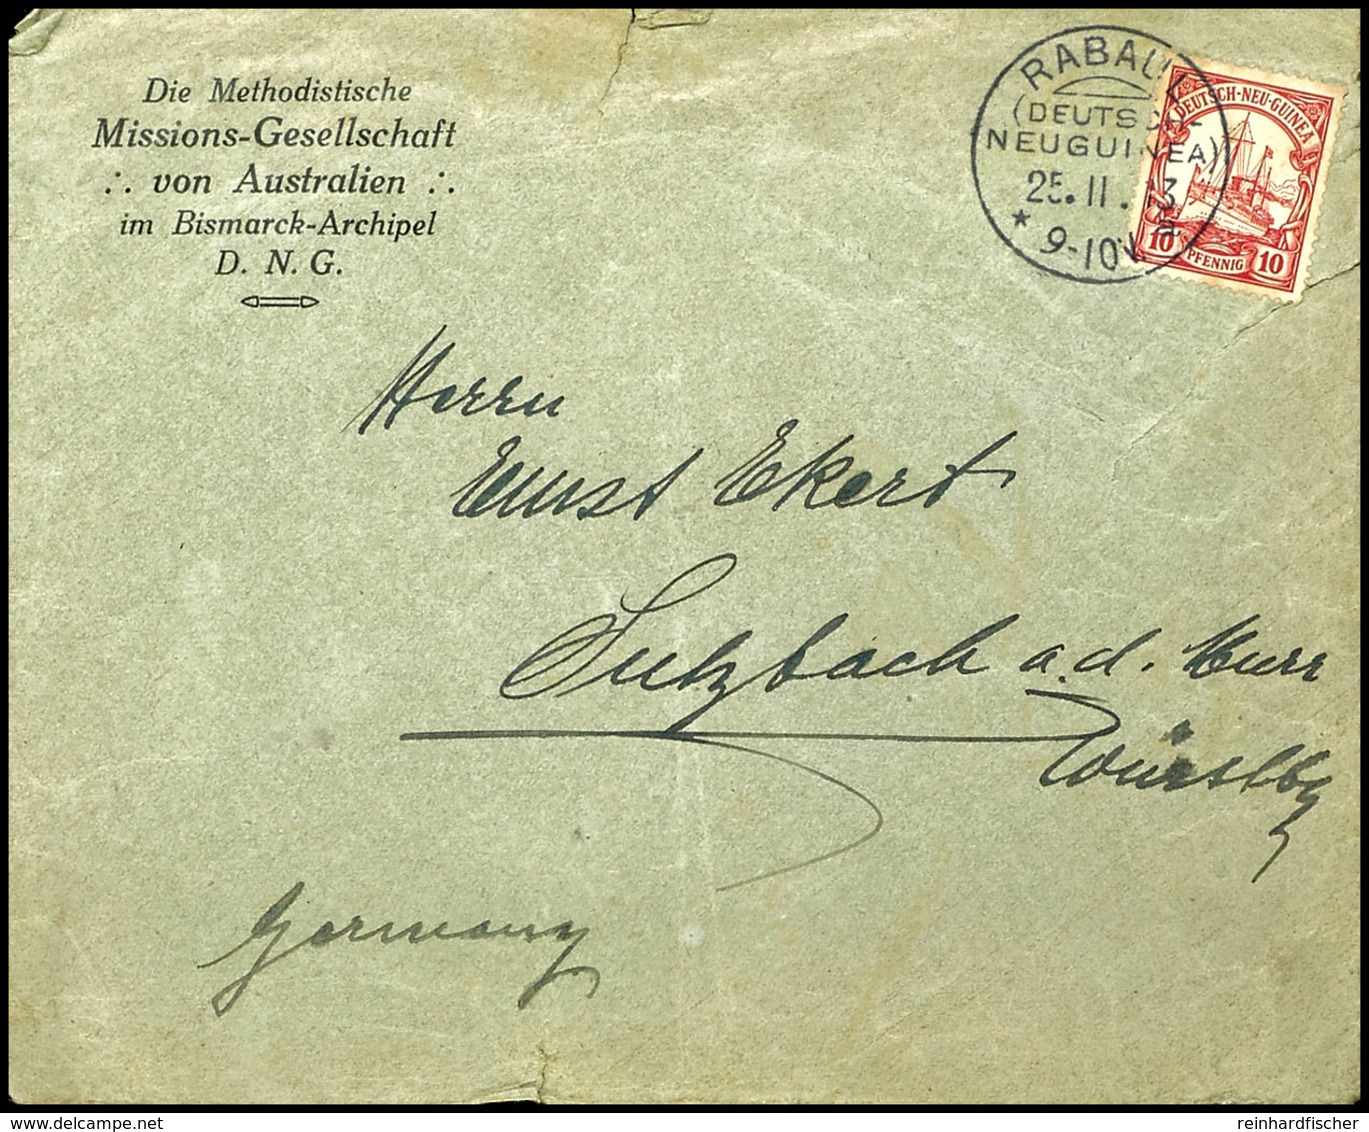 Die Methodistische
Missions-Gesellschaft
∴ von Australien ∴
im Bismarck-Archipel
D. N. G.
RABAUL
(DEUTSCH-
NEUGUINEA)
25. 11. 13
* 9-10 V a
DEUTSCH-NEU-GUINEA
10 PFENNIG 10
Herrn
Ernst Ekert
Sulzbach a. d. Murr
Württbg
Germany
delcampe.net
reinhardfischer